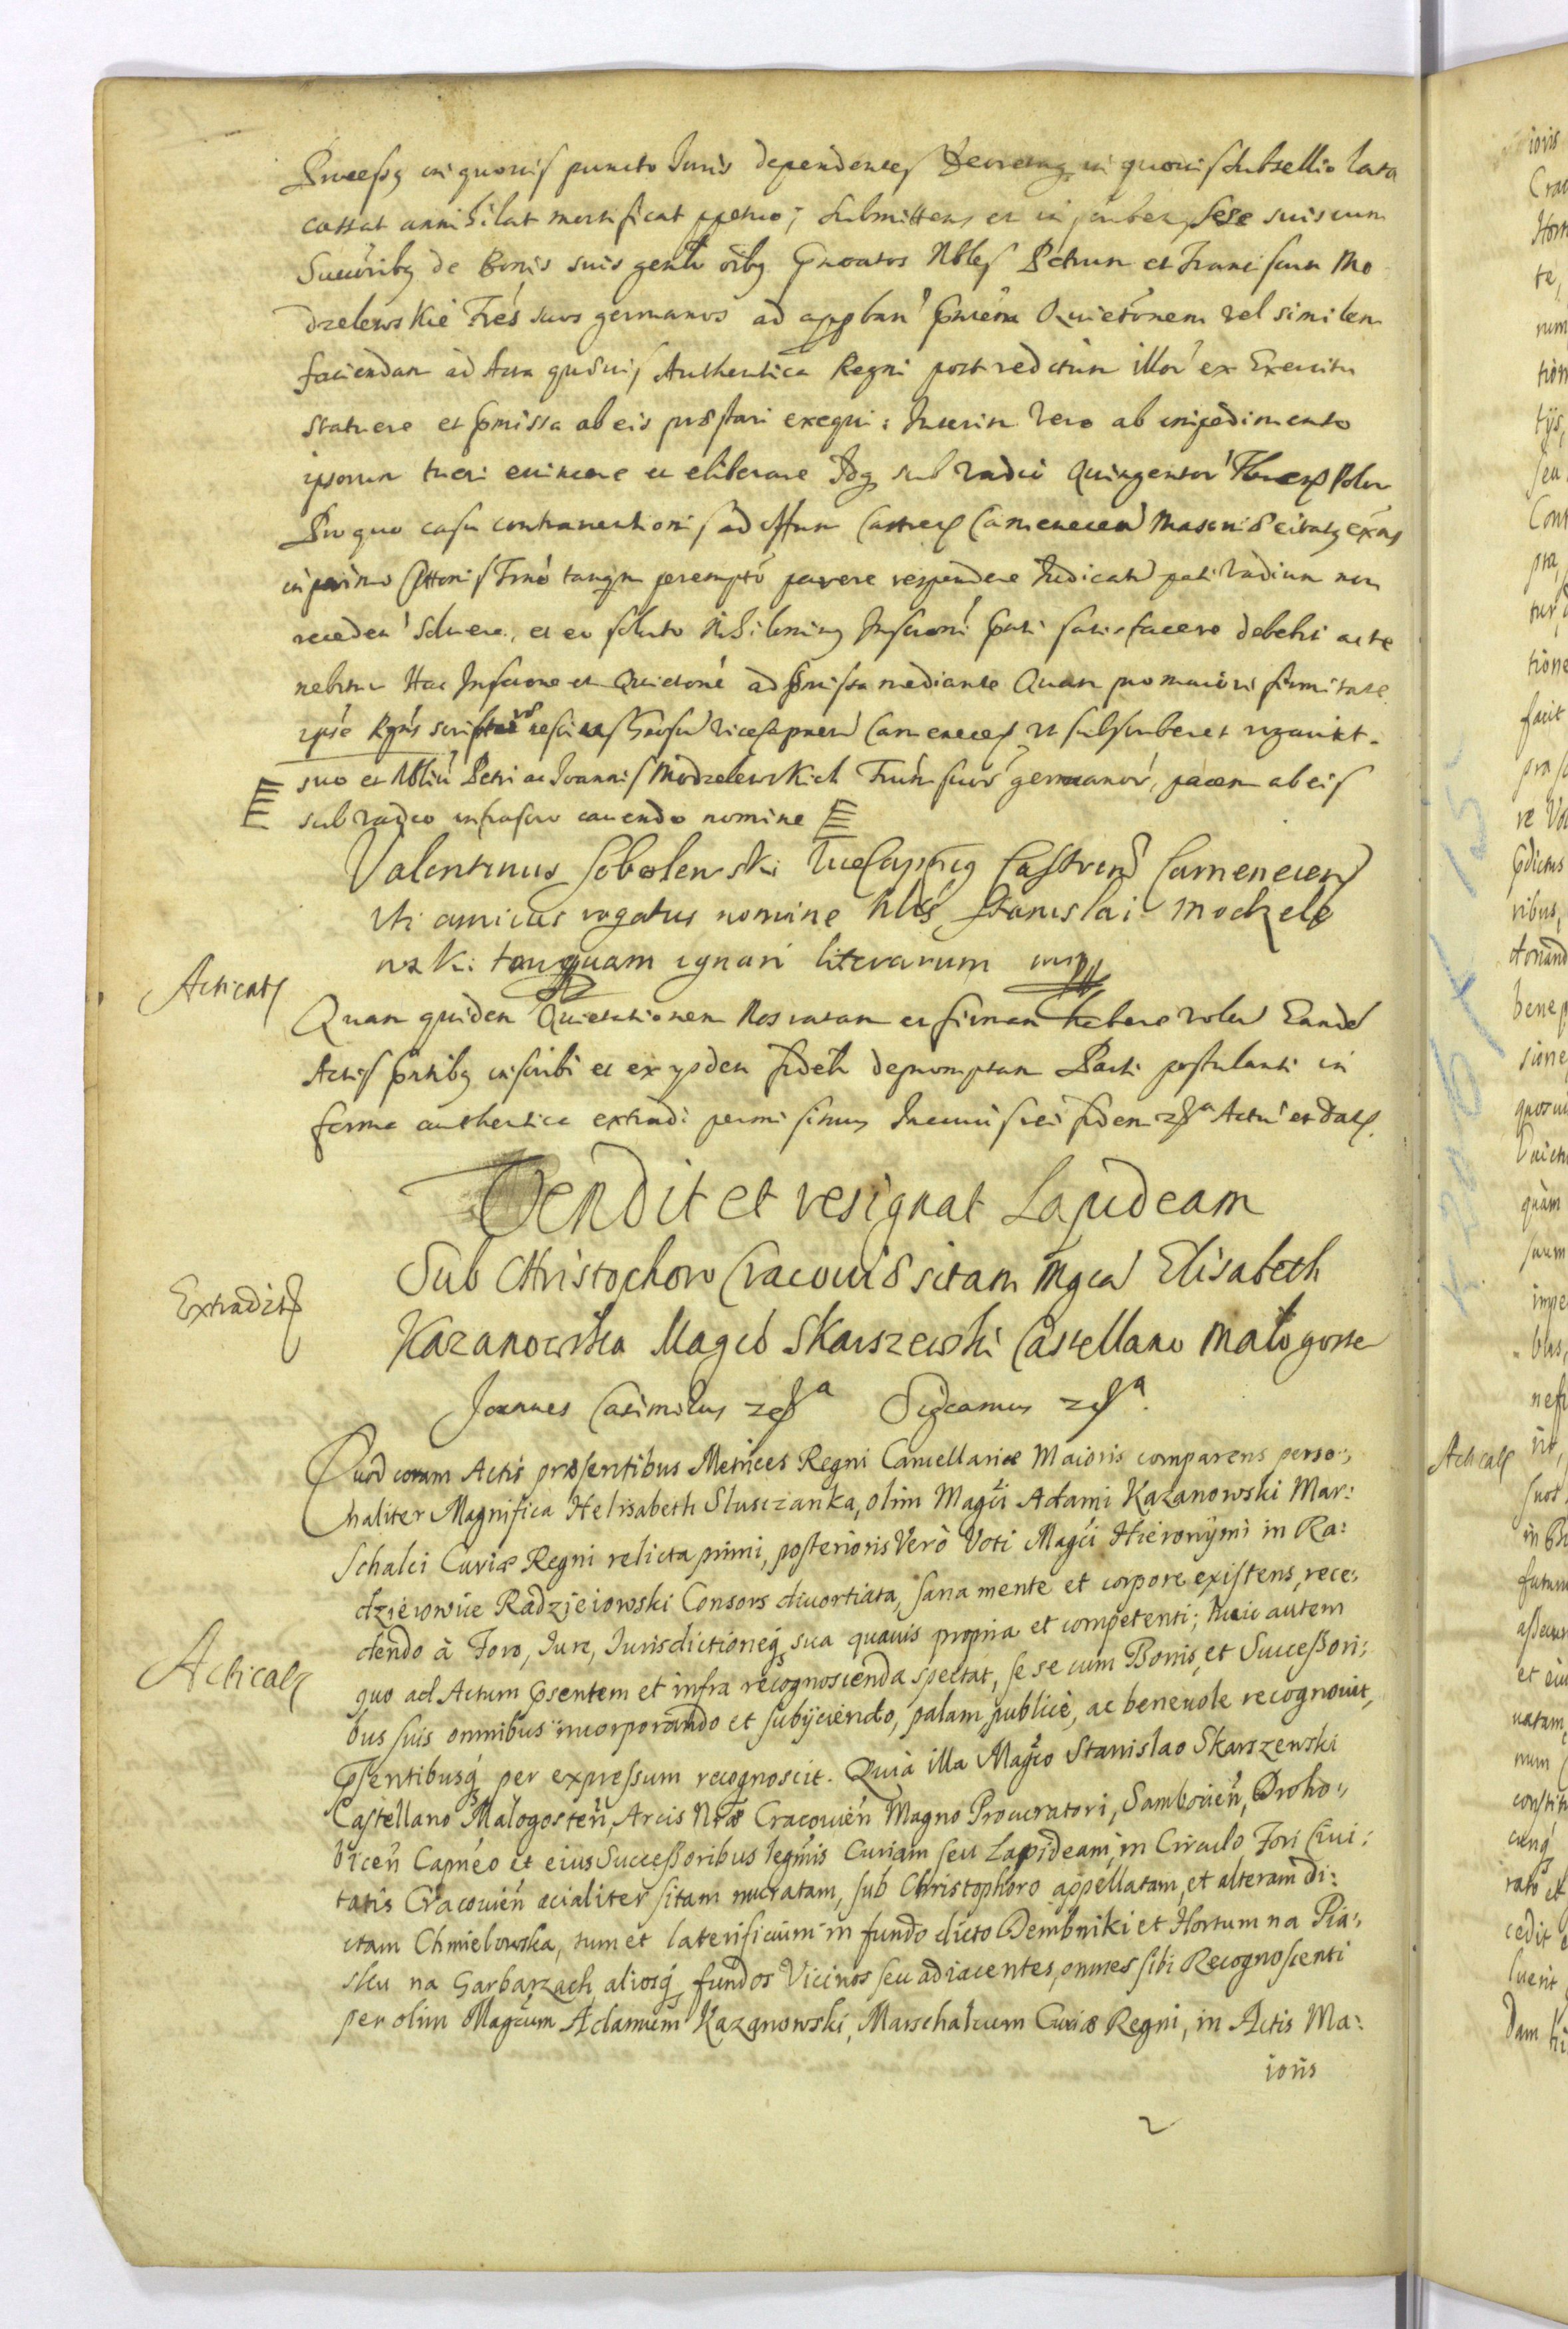 Processq in quovis puncto Juris dependentes Decretaq in quovis Subsellio lata
cassat annihilat mortificat ppetuo; Submittens et inscribens sese suis cum
Succoribq de Bonis suis genlr oibq Gnoatos Nbles Petrum et Franciscum Mo
dzelewskie Fres suos germanos ad approban pntem Quietonem vel similem
faciendam ad Acta quævis Authentica Regni post reditum illor ex Exercitu
statuere et pmissa ab eis præstari exequi: Interim vero ab impedimento
ipsorum tueri evincere et eliberare Idq sub vadio Quingentor Polon
Pro quo casu contraventionis ad Offum Castren Camenecen Masoviæ citatq
in primo Ctonis Trno tanqm perempto parere respondere Judicatu pati vadium non
recedendo solvere, et eo soluto Nihilominq Inscroni pnti satisfacere debebit ac te
nebitur Hac Inscrone et Quietone ad pmissa mediante Quam pro maiori firmitate
ipse Rgns scripturæ nescius Gnosu Vicecapneu Camenecen ut subscriberet rogavit.
suo et Nbliu Petri ac Joannis Modzelewskich Frum suor germanor, pacem ab eis
sub vadio infrascro cavendo nomine
Valentinus Sobolewski Vicecapneq Castren Camenecen
uti amicus rogatus nomine Nbls Stanislai Modzele
wski tanquam ignari literarum mp
Acticat
Quam quidem Quietationem Nos ratam et firmam habere volen Eande
Actis pntibq inscribi et ex ysdem fidelr depromptam Parti postulanti in
forma authentica extradi permisimus In cuius rei fidem Actu et Dat.
Vendit et resignat Lapideam
Sub Christophoro Cracoviæ sitam Mgca Elisabeth
Extradit
Kazanowska Magco Skarszewski Castellano Małogosce
Joannes Casimirus Significamus
Quod coram Actis præsentibus Metrices Regni Cancellariæ Maioris comparens perso:,
naliter Magnifica Helisabeth Słusczanka, olim Magci Adami Kazanowski Mar:
Schalci Curiæ Regni relicta primi, posterioris Verò Voti Magci Hieronymi in Ra:
dziejowice Radziejowski Consors divortiata, sana mente et corpore existens, rece:,
dendo à Foro, Iure, Iurisdictioneq sua quavis propria et competenti; huic autem
Acticat
quo ad Actum psentem et infra recognoscenda spectat, se se cum Bonis, et Successori:
bus suis omnibus incorporando et subÿciendo, palam publicè, ac benevole recognovit,
psentibusq per expressum recognoscit. Quià illa Magco Stanislao Skarszewski
Castellano Małogosten, Arcis Nræ Cracovien Magno Procuratori, Samboren, Droho:,
bicen Capneo et eius Successoribus legmis Curiam seu Lapideam in Circulo Fori Civi:
tatis Cracovien acialiter sitam muratam, sub Christophoro appellatam, et alteram di:
ctam Chmielowska, tum et laterificium in fundo dicto Dembniki et Hortum na Pia:,
sku na Garbarzach aliosq fundos Vicinos seu adiacentes, omnes sibi Recognoscenti
per olim Magcum Adamum Kazanowski, Marschalcum Curiæ Regni, in Actis Ma:
ioris
Acticat